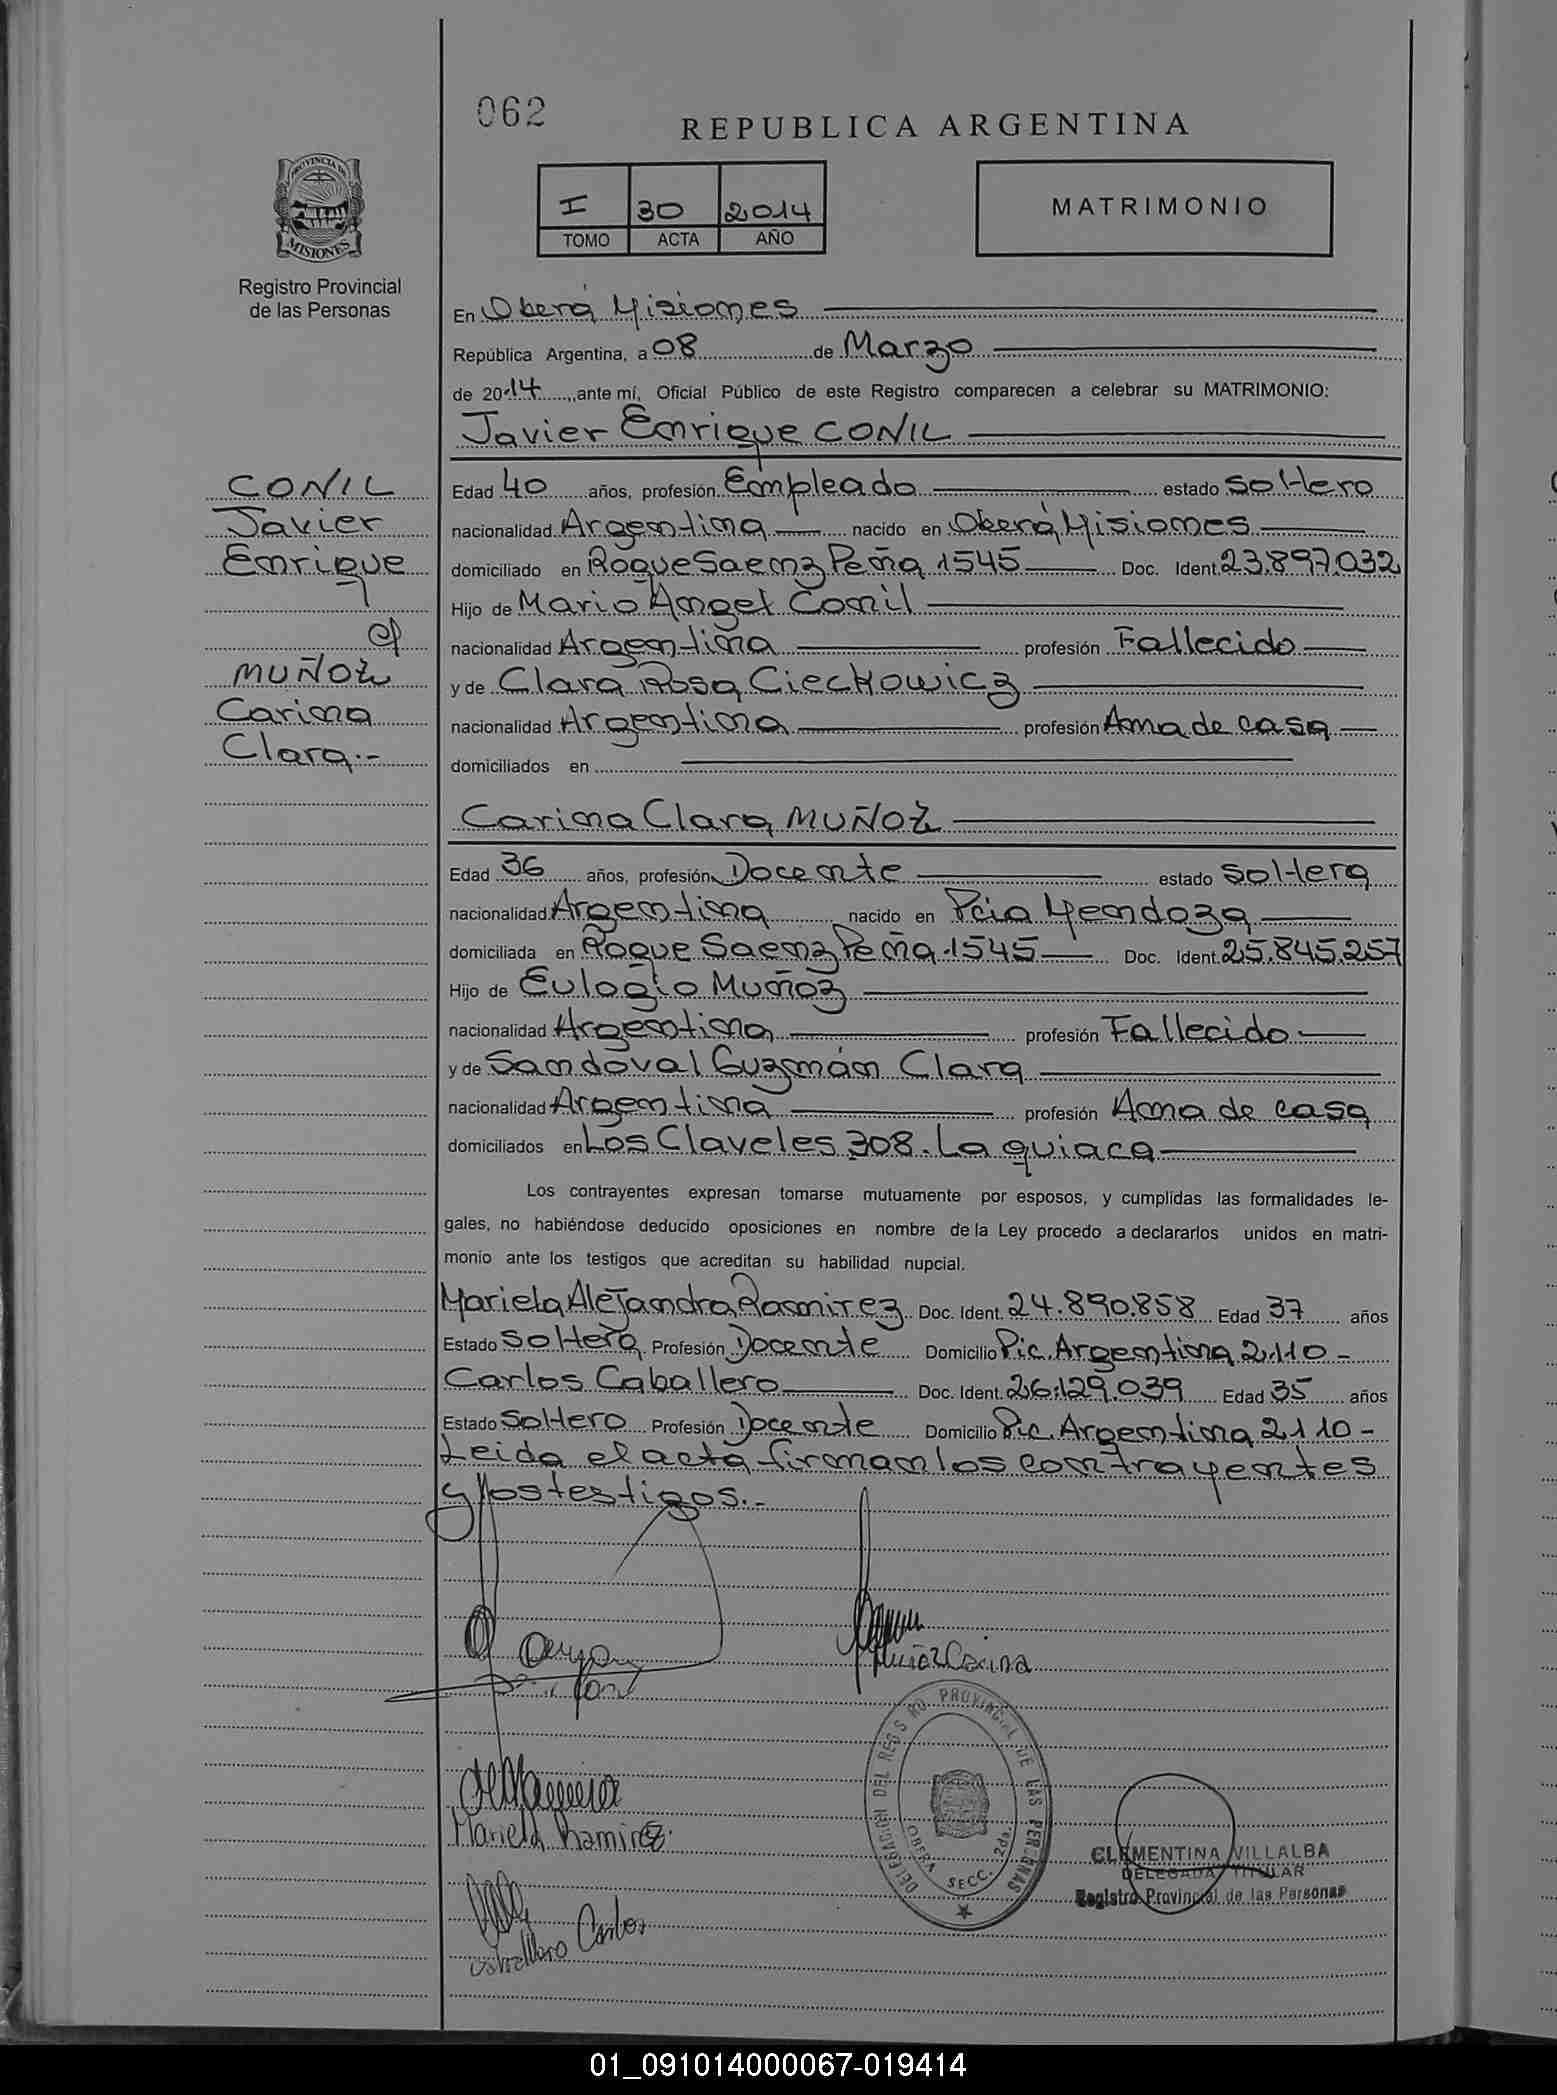 062
REPUBLICA ARGENTINA
I 30 2014
TOMO ACTA AÑO
MATRIMONIO
PROVINCIA DE
MISIONES
Registro Provincial
de las Personas
En Oberá Misiones
República Argentina, a 08 de Marzo
de 2014, ante mí, Oficial Público de este Registro comparecen a celebrar su MATRIMONIO:
Javier Enrique CONIL
CONIL
Javier
Enrique
c/
MUÑOZ
Carina
Clara.-
Edad 40 años, profesión Empleado estado soltero
nacionalidad Argentina nacido en Oberá, Misiones
domiciliado en Roque Saenz Peña 1545 Doc. Ident. 23.897.032
Hijo de Mario Angel Conil
nacionalidad Argentina profesión Fallecido
y de Clara Rosa Ciechowicz
nacionalidad Argentina profesión Ama de casa
domiciliados en
Carina Clara MUÑOZ
Edad 36 años, profesión Docente estado soltera
nacionalidad Argentina nacido en Pcia Mendoza
domiciliada en Roque Saenz Peña 1545 Doc. Ident. 25.845.257
Hijo de Eulogio Muñoz
nacionalidad Argentina profesión Fallecido
y de Sandoval Guzmán Clara
nacionalidad Argentina profesión Ama de casa
domiciliados en Los Claveles 308. La quiaca
Los contrayentes expresan tomarse mutuamente por esposos, y cumplidas las formalidades le-
gales, no habiéndose deducido oposiciones en nombre de la Ley procedo a declararlos unidos en matri-
monio ante los testigos que acreditan su habilidad nupcial.
Mariela Alejandra Ramirez Doc. Ident. 24.890.858 Edad 37 años
Estado soltera Profesión Docente Domicilio Pic. Argentina 2110-
Carlos Caballero Doc. Ident. 26.129.039 Edad 35 años
Estado soltero Profesión Docente Domicilio Pic. Argentina 2110-
Leida el acta firman los contrayentes
y los testigos.-
Muñoz Carina
Mariela Ramirez
Caballero Carlos
DELEGACION DEL REGISTRO PROVINCIAL DE LAS PERSONAS
OBERA SECC. 2da
CLEMENTINA VILLALBA
DELEGADA TITULAR
Registro Provincial de las Personas
01_091014000067-019414